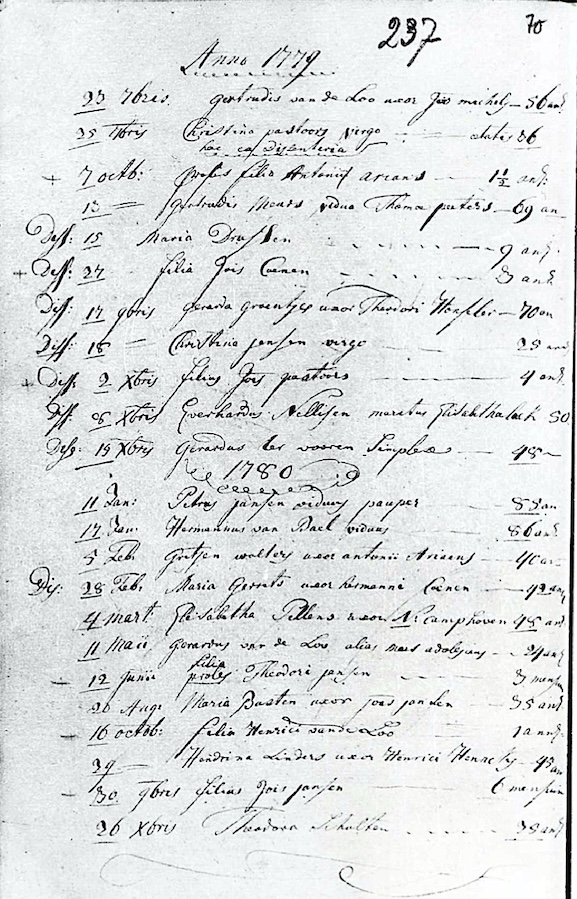 237 70
Anno 1779
23 7bris. Gertrudis van de Loo uxor Jois michels — 56 an
25 7bris Christina pastoors virgo ætatis 36
hæc ex Disenteria
+ 7 octb: proles filia Antonii arians — 1½ an:
13 — Gertrudis Meurs vidua Thomæ peeters — 69 an
Diss: 15 Maria Drissen — 9 an:
+ Diss: 27 filia Jois Coenen 3 an:
Diss: 17 9bris Gerarda Groentjes uxor Theodori — 70 an
Diss: 18 — Christina jansen virgo 25 an
+ Diss: 2 Xbris filius Jois pastoors — 4 an:
Diss: 8 Xbris Everhardus Nillesen maritus Elisabetha 50
Diss: 15 Xbris Gerardus ter vooren Simplex — 48 —
1780
11 Jan: Petrus jansen viduus pauper — 83 an
17 Jan: Hermannus van Bael viduus — 86 an:
5 Feb: Gritjen wolters uxor antonii Arians — 40 an
Dis: 28 Feb: Maria Gerrits uxor hermanni Coenen — 42 an
4 mart. Elisabetha Pellens uxor N: Camphoven 45 an
11 Maii Gerardus van de Loo alias maes adolescens — 24 an:
filia
— 12 junii proles Theodori jansen — 3 mens
20 Aug: Maria Basten uxor joas jansen — 35 an:
— 16 octob: filia Henrici van de Loo — 1 ann:
29 — Hendrina Linders uxor Henrici — 45 an
— 30 9bris filius Jois jansen — 6 mensium
26 Xbris Theodora Scholten 38 an: